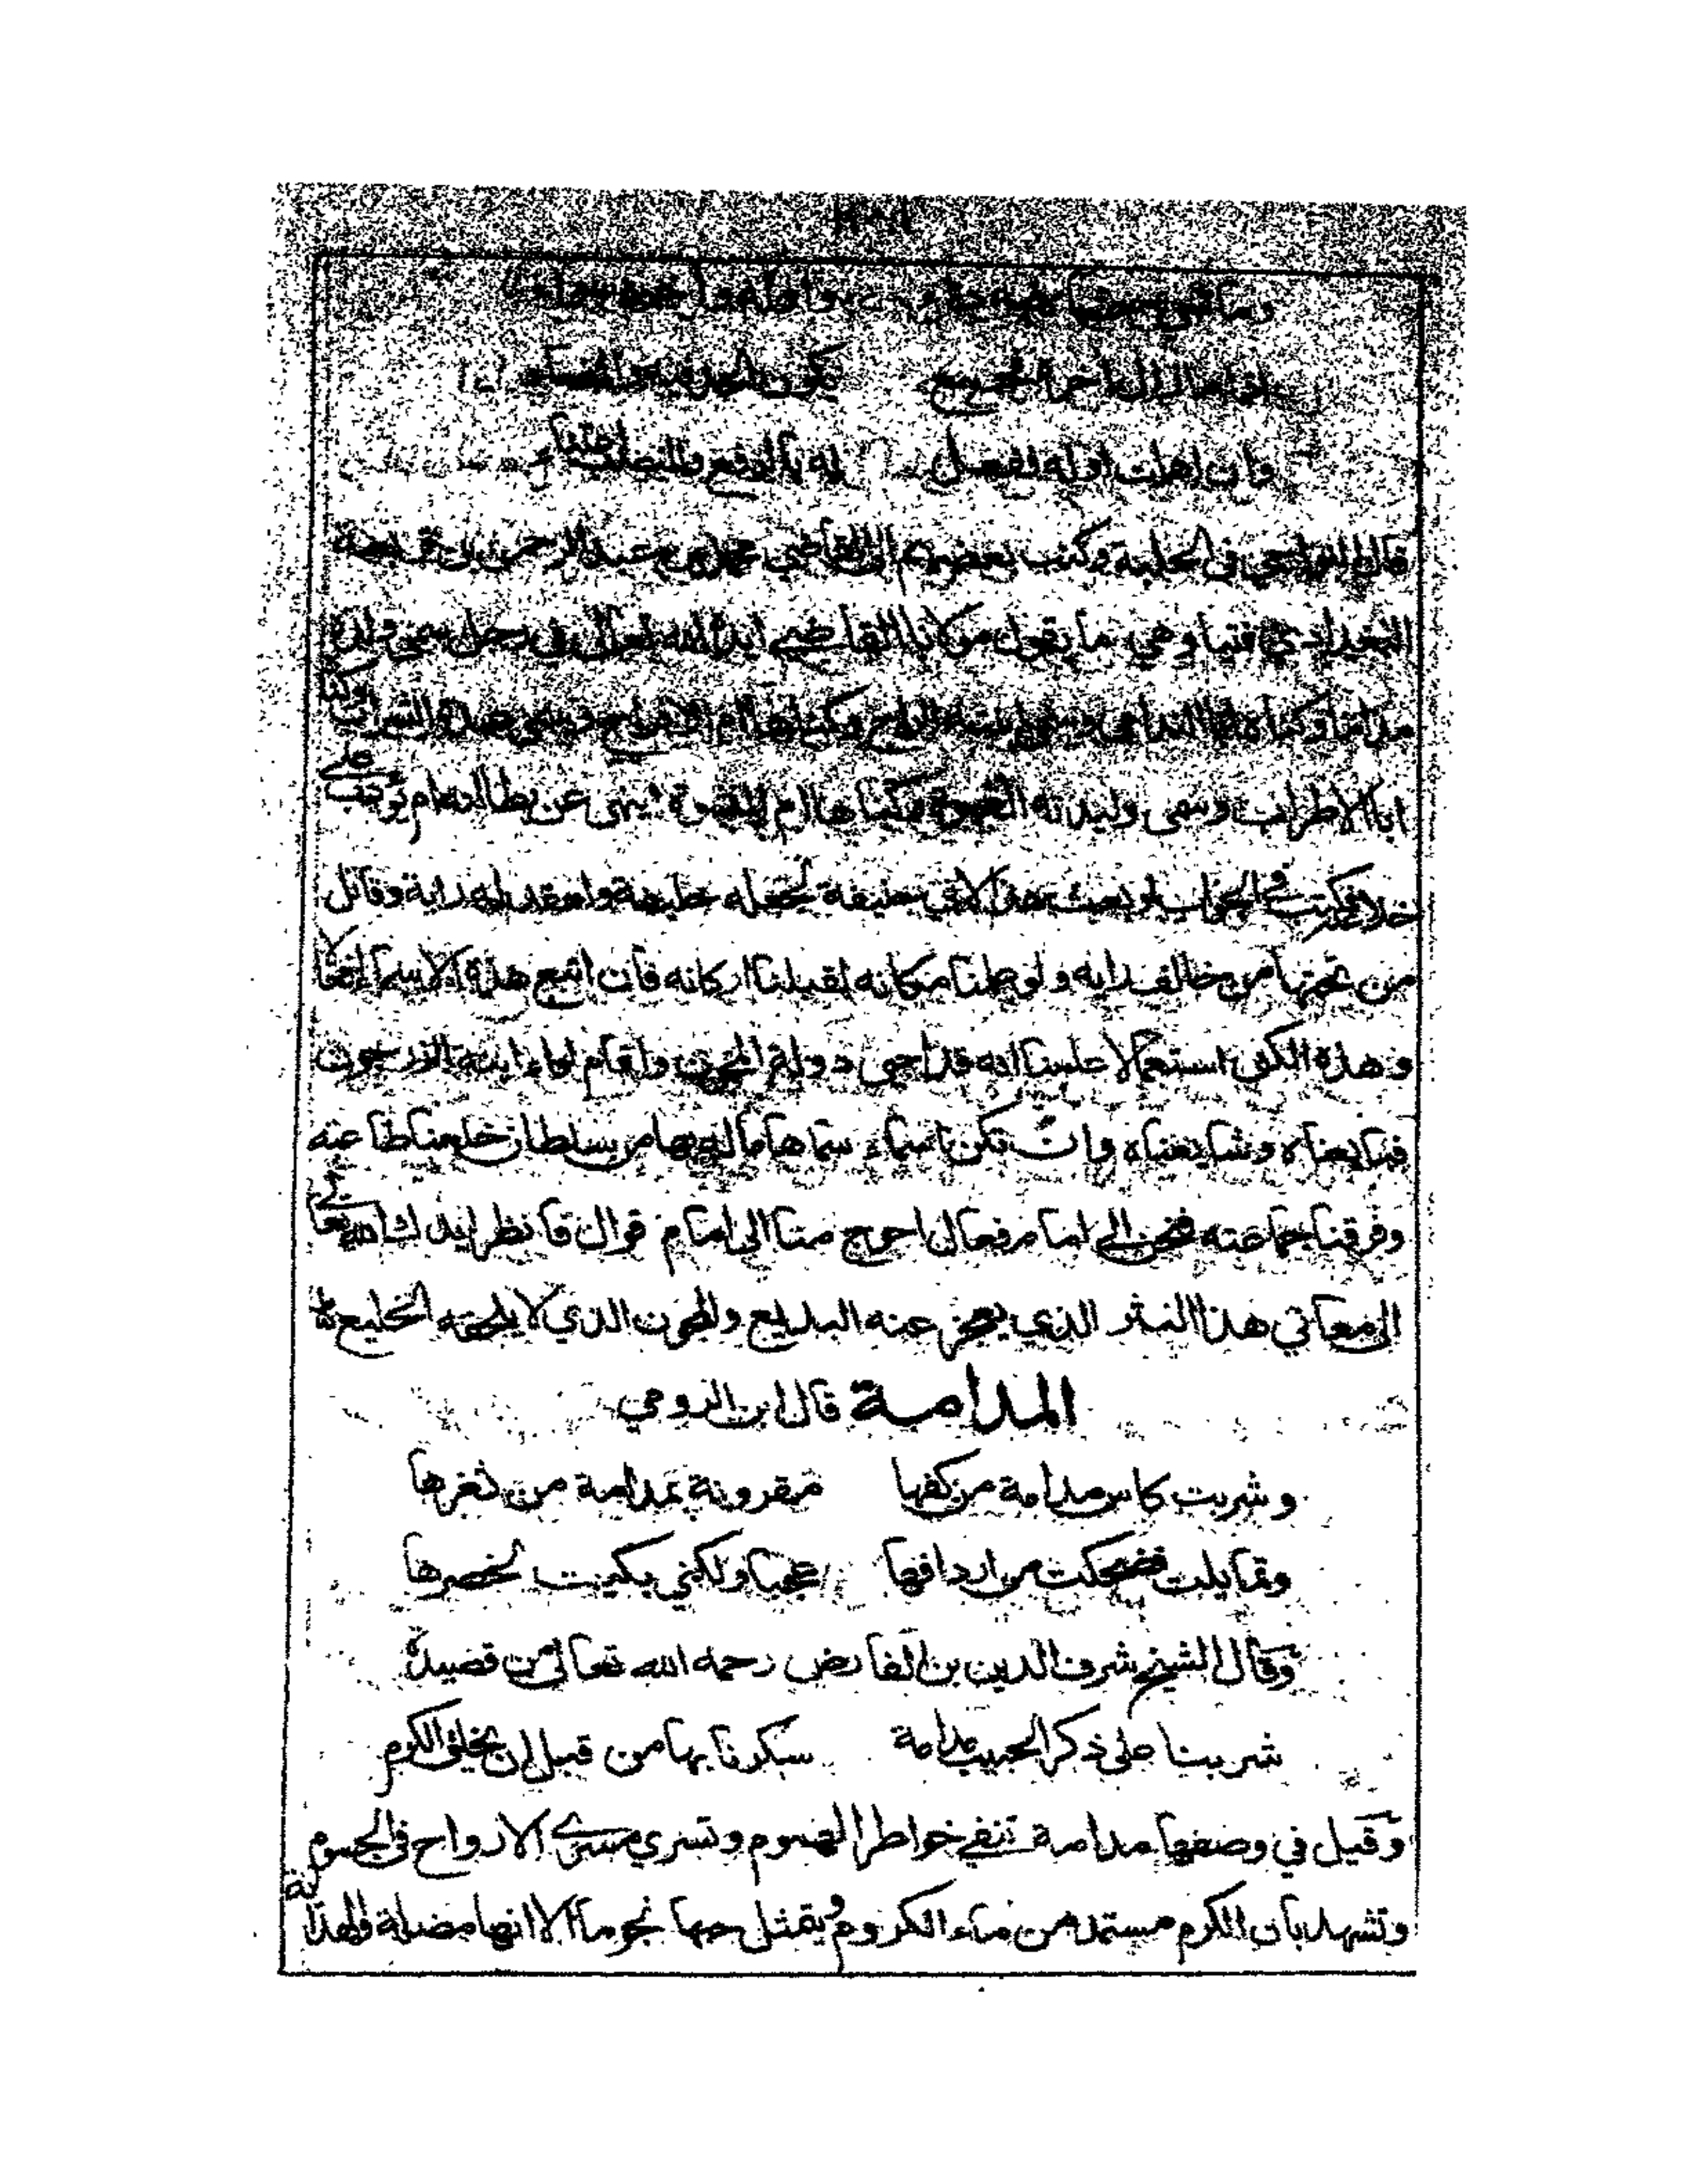 اذا ما زال آخره فجمع
وان اهملت اوله ففعل له بالرفع والنصب اعتنا
قال النواجي في الحلبة وكتب بعضهم الى القاضي محمد بن عبد الرحمن بن قريعة
البغدادي فتيا وهي ما يقول مولانا القاضي ايده الله تعالى في رجل سمى ولده
مداما وكناه ابا الندامى وسمى ابنته الراح وكناها ام الافراح وسمى عبده الشراب وكناه
ابا الاطراب وسمى وليدته القهوة وكناها ام النشوة اينهى عن بطالته ام يؤدب على
خلاعته فكتب في الجواب لو بعث هذا لابي حنيفة لجعله خليفة ولعقد له راية وقاتل
من تحتها من خالف رايه ولو علمنا مكانه لقبلنا اركانه فان اتبع هذه الاسماء افعالا
وهذه الكنى استعمالا علمنا انه قد احيى دولة المجون واقام لواء ابنة الزرجون
فبايعناه وشايعناه وان تكن اسماء سماها ماله بها من سلطان خلعنا طاعته
وفرقنا جماعته فنحن الى امام فعال احوج منا الى امام قوال فانظر ايدك الله تعالى
الى معاني هذا النثر الذي يعجز عنه البديع والمجون الذي لا يلحقه الخليع
المدامة قال ابن الرومي
وشربت كاس مدامة من كفها مقرونة بمدامة من ثغرها
وتمايلت فضحكت من اردافها عجبا ولكني بكيت لخصرها
وقال الشيخ شرف الدين بن الفارض رحمه الله تعالى من قصيدة
شربنا على ذكر الحبيب مدامة سكرنا بها من قبل ان يخلق الكرم
وقيل في وصفها مدامة تنفي خواطر الهموم وتسري مسرى الارواح في الجسوم
وتشهد بان الكرم مستمد من ماء الكروم ويمثل حبها نجوما الا انها مضلة ولهذا